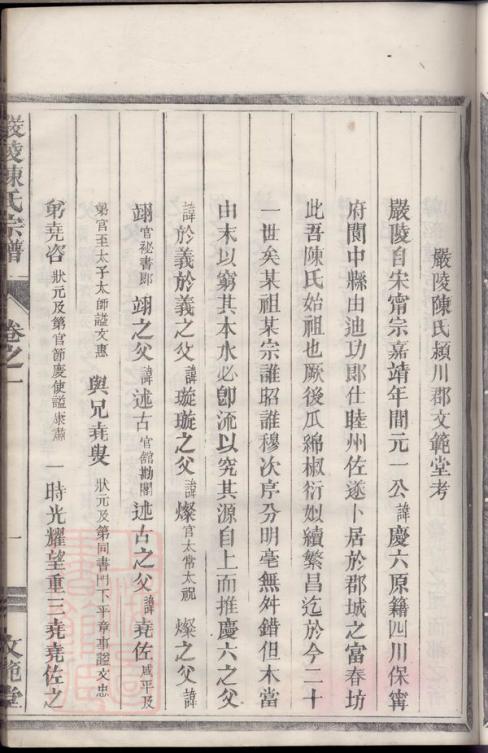 嚴陵陳氏潁川郡文範堂考
嚴陵自宋甯宗嘉靖年間元一公諱慶六原籍四川保甯
府閬中縣由迪功郎仕睦州佐遂卜居於郡城之富春坊
此吾陳氏始祖也厥後瓜綿椒衍姒續繁昌迄於今二十
一世矣某祖某宗誰昭誰穆次序分明毫無舛錯但木當
由末以窮其本水必卽流以究其源自上而推慶六之父
諱於義於義之父諱璇璇之父諱燦官太常太祝燦之父諱
翊官祕書郎翊之父諱述古官館勘閣述古之父諱堯佐咸平及
第官至太子太師諡文惠與兄堯叟狀元及第同書門下平章事諡文忠
弟堯咨狀元及第官節度使諡康肅一時光耀望重三堯堯佐之
嚴陵陳氏宗譜
卷之一
一
文範堂